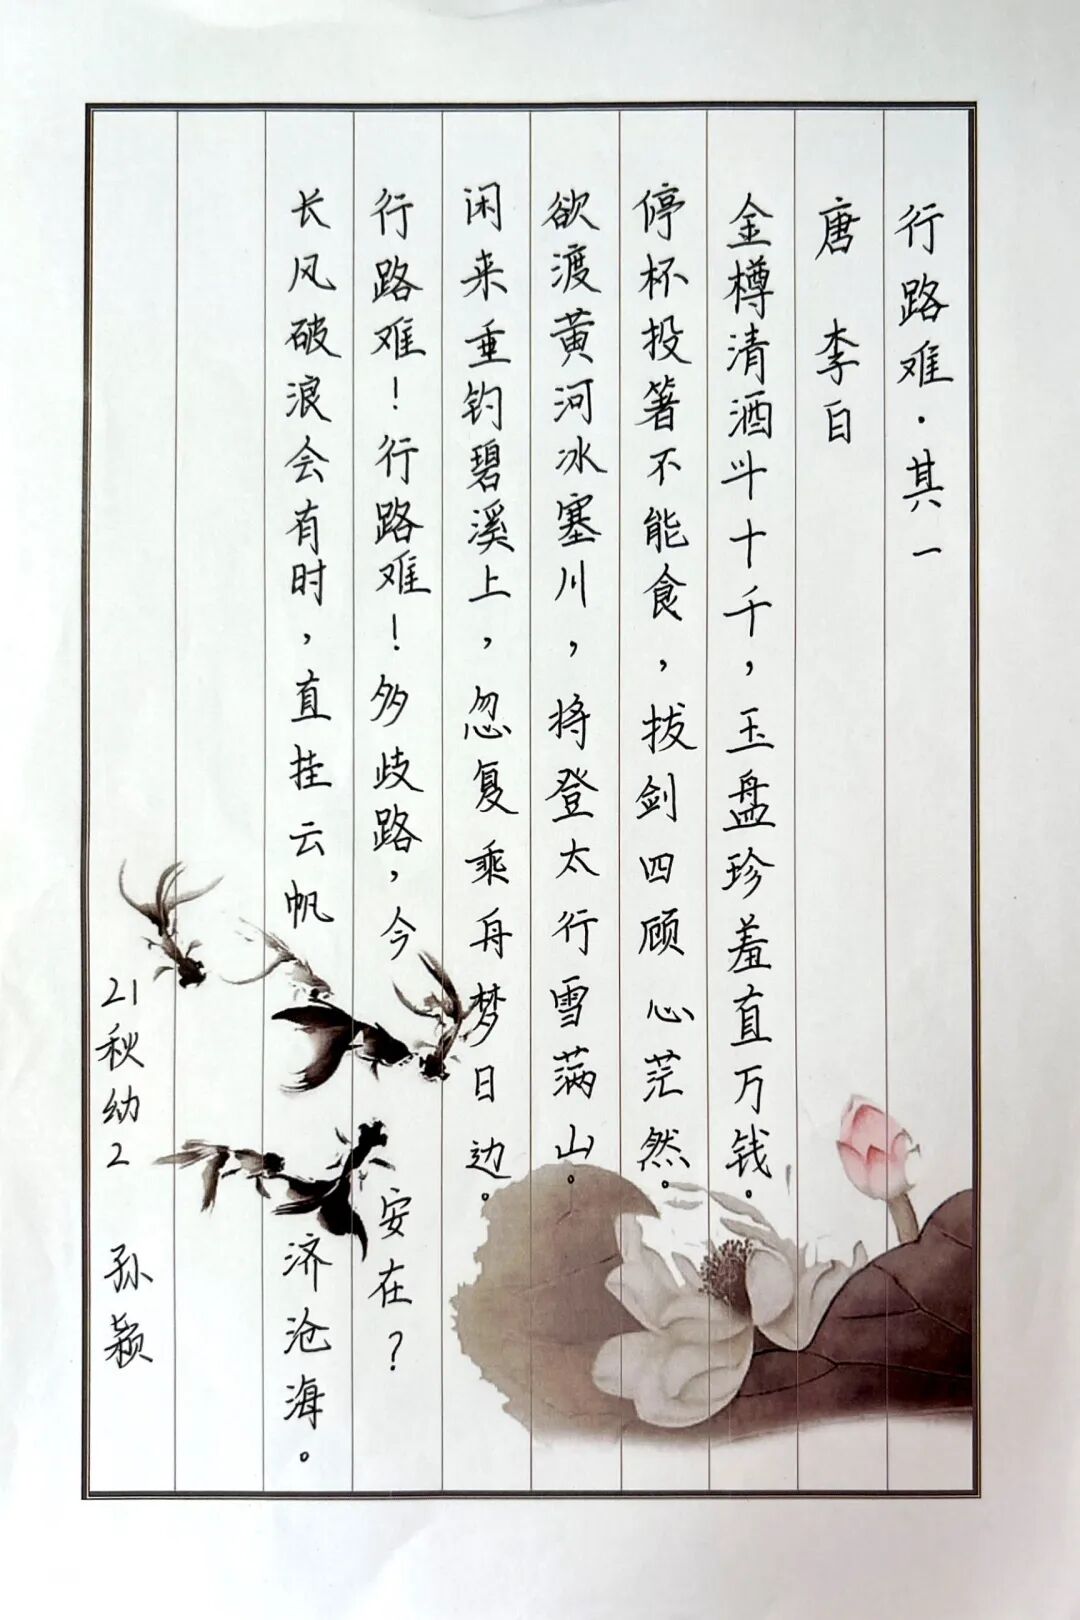 行路难·其一
唐 李白
金樽清酒斗十千，玉盘珍羞直万钱。
停杯投箸不能食，拔剑四顾心茫然。
欲渡黄河冰塞川，将登太行雪满山。
闲来垂钓碧溪上，忽复乘舟梦日边。
行路难！行路难！多歧路，今安在？
长风破浪会有时，直挂云帆济沧海。
21秋幼2 孙颖